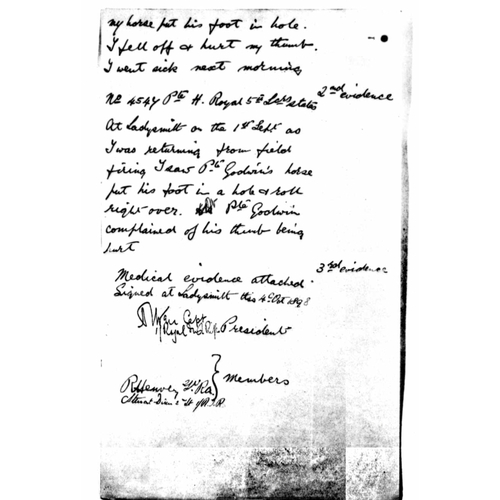 my horse put his foot in hole.
I fell off & hurt my thumb.
I went sick next morning
No 4547 Pte H. Royal 5th Lrs states 2nd evidence
At Ladysmith on the 1st Sept as
I was returning from field
firing I saw Pte Godwin's horse
put his foot in a hole & roll
right over. Pte Godwin
complained of his thumb being
hurt
Medical evidence attached. 3rd evidence
Signed at Ladysmith this 4 Oct 1898
Capt
President
Members